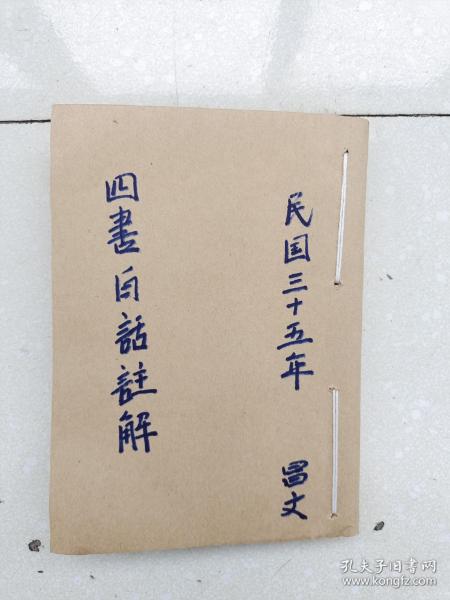 民国三十五年
昌文
四書白話註解
孔夫子旧书网
www.kongfz.com